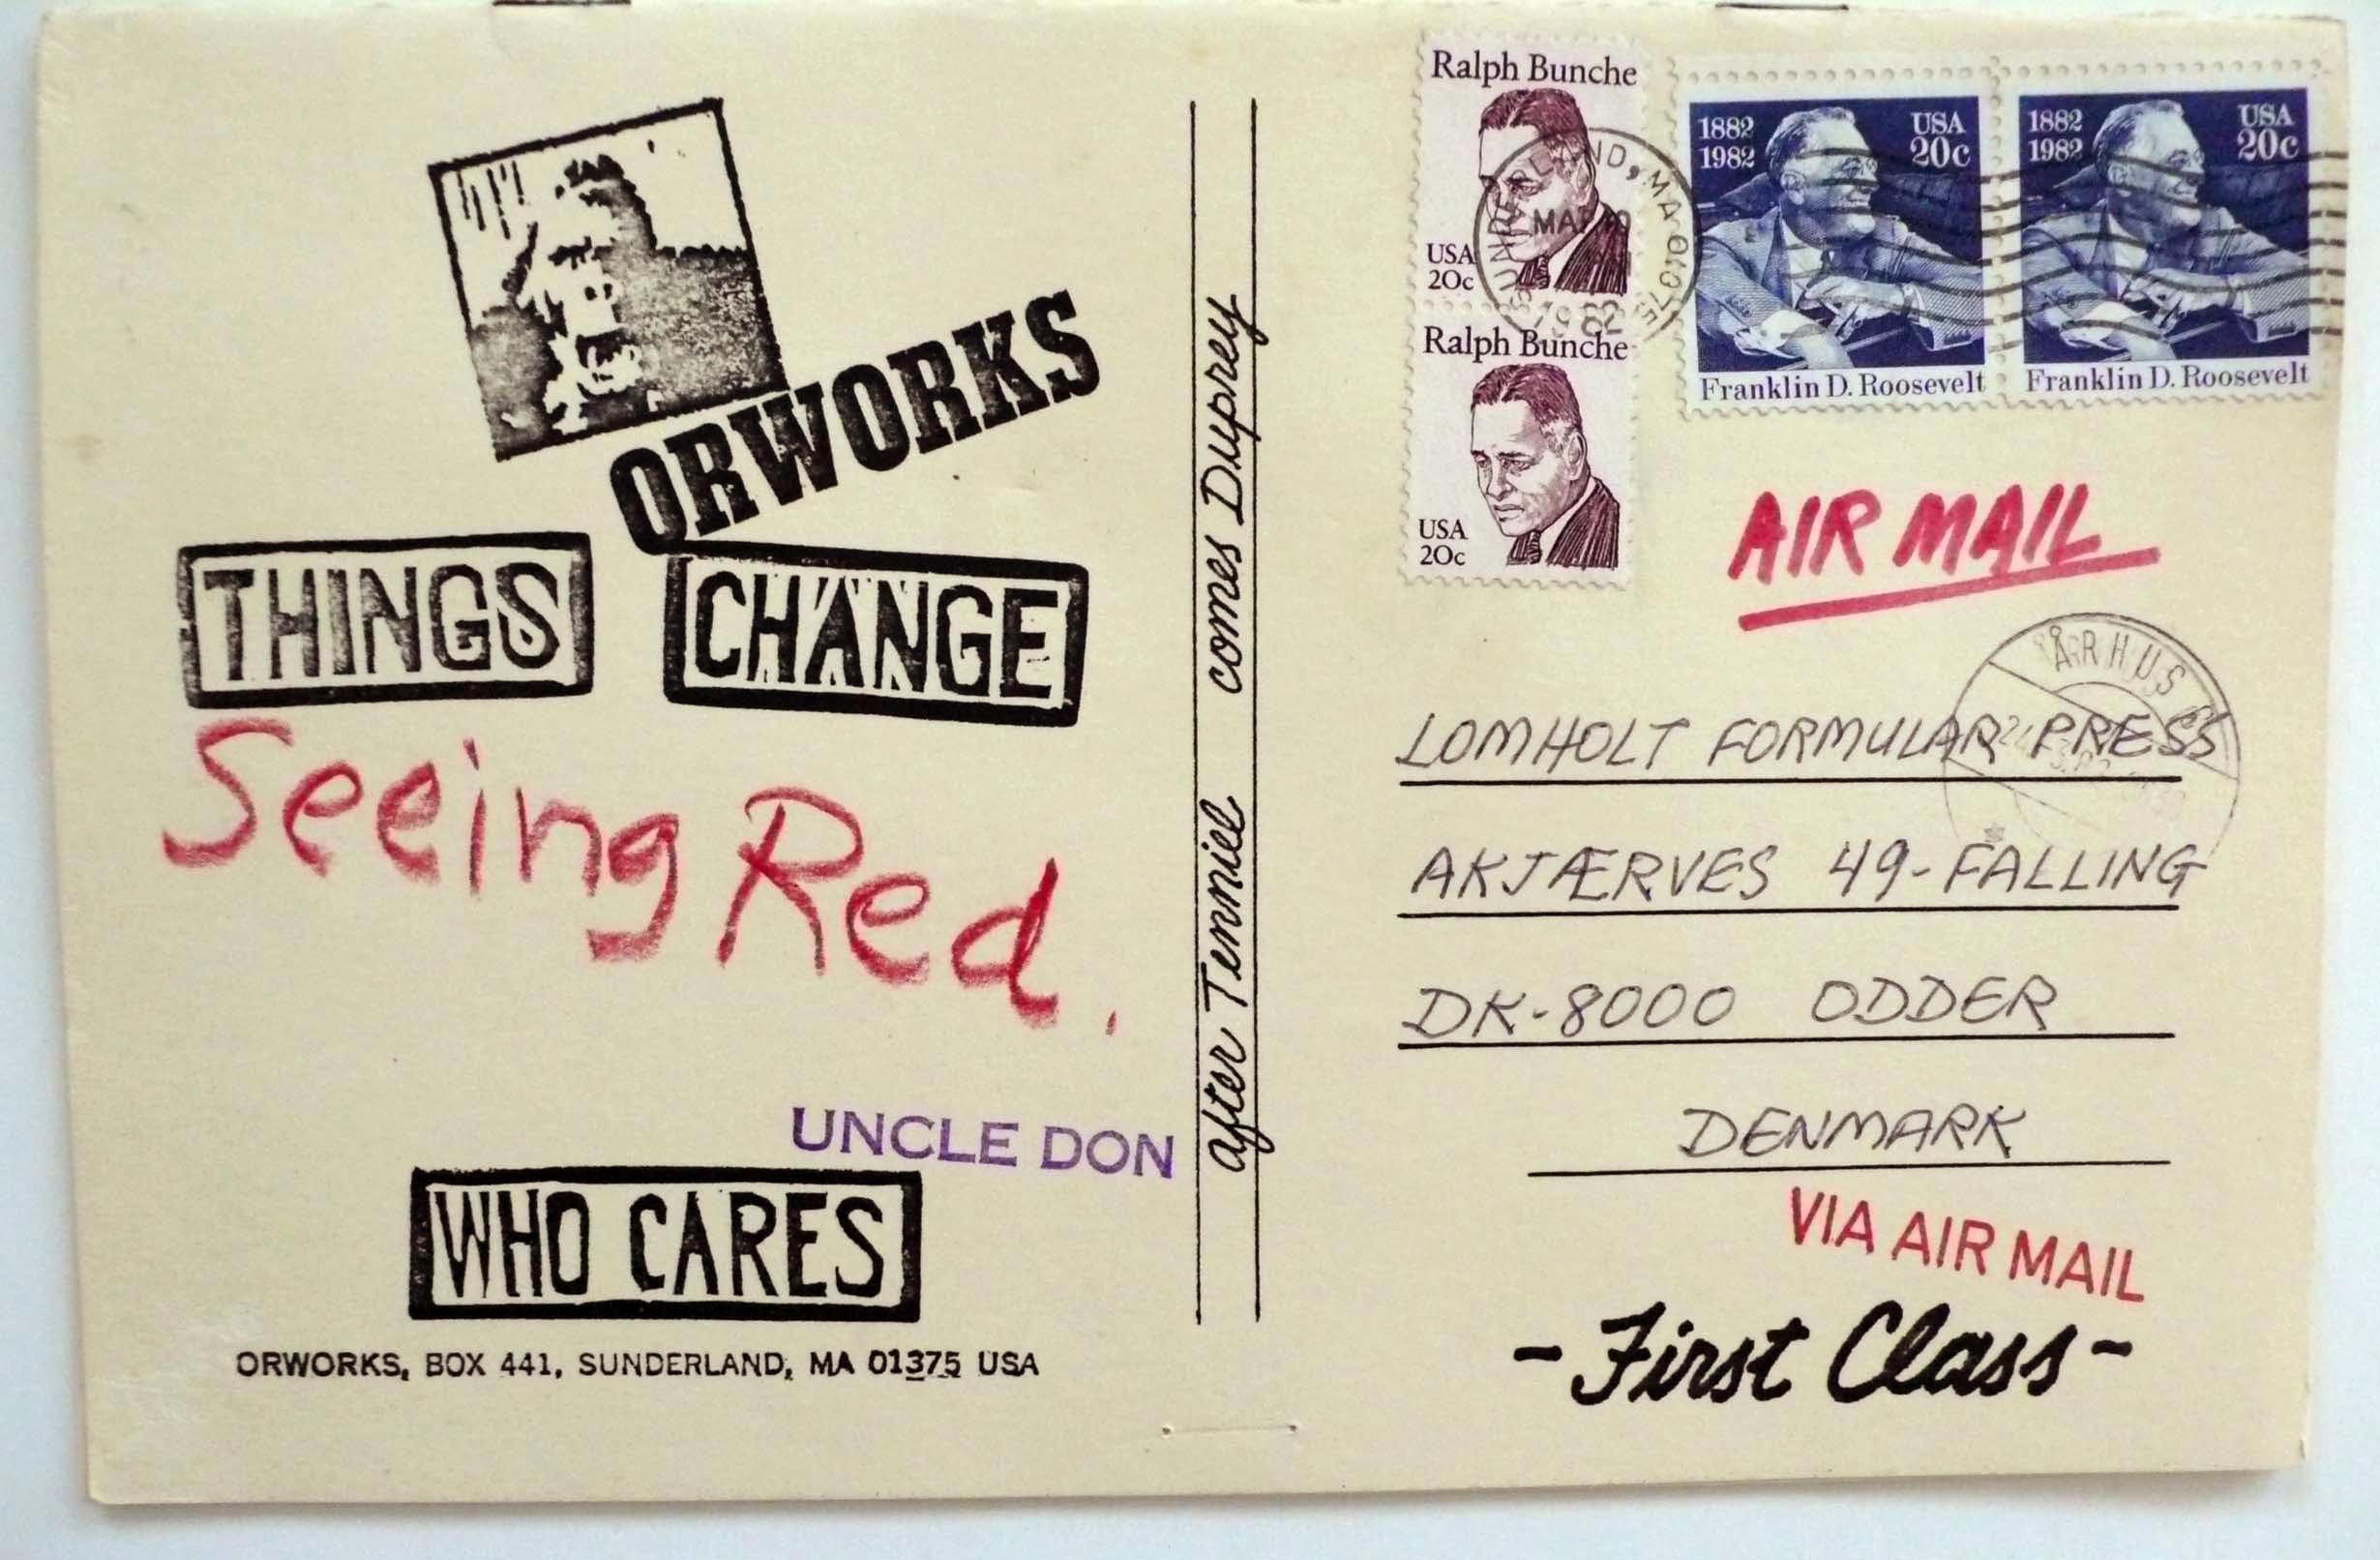 ORWORKS
THINGS CHANGE
Seeing Red.
UNCLE DON
WHO CARES
ORWORKS, BOX 441, SUNDERLAND, MA 01375 USA
after Tenniel comes Duprey
Ralph Bunche
USA
20c
Ralph Bunche
USA
20c
SUNDERLAND, MA 01375
1982
1882
1982
USA
20c
Franklin D. Roosevelt
1882
1982
USA
20c
Franklin D. Roosevelt
AIR MAIL
ÅRHUS
LOMHOLT FORMULAR PRESS
AKJÆRVES 49-FALLING
DK-8000 ODDER
DENMARK
VIA AIR MAIL
-First Class-